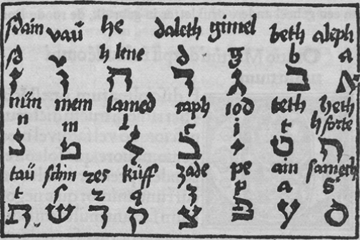 sdain vaü he daleth gimel beth aleph
h lene d g b a
ז ו ה ד ג ב א
nün mem lamed caph iod beth heth
n m l i t h forte
נ מ ל כ י ט ח
taü schin res küff zade pe ain sameth
t sch r q z p a s
ת ש ר ק צ פ ע ס